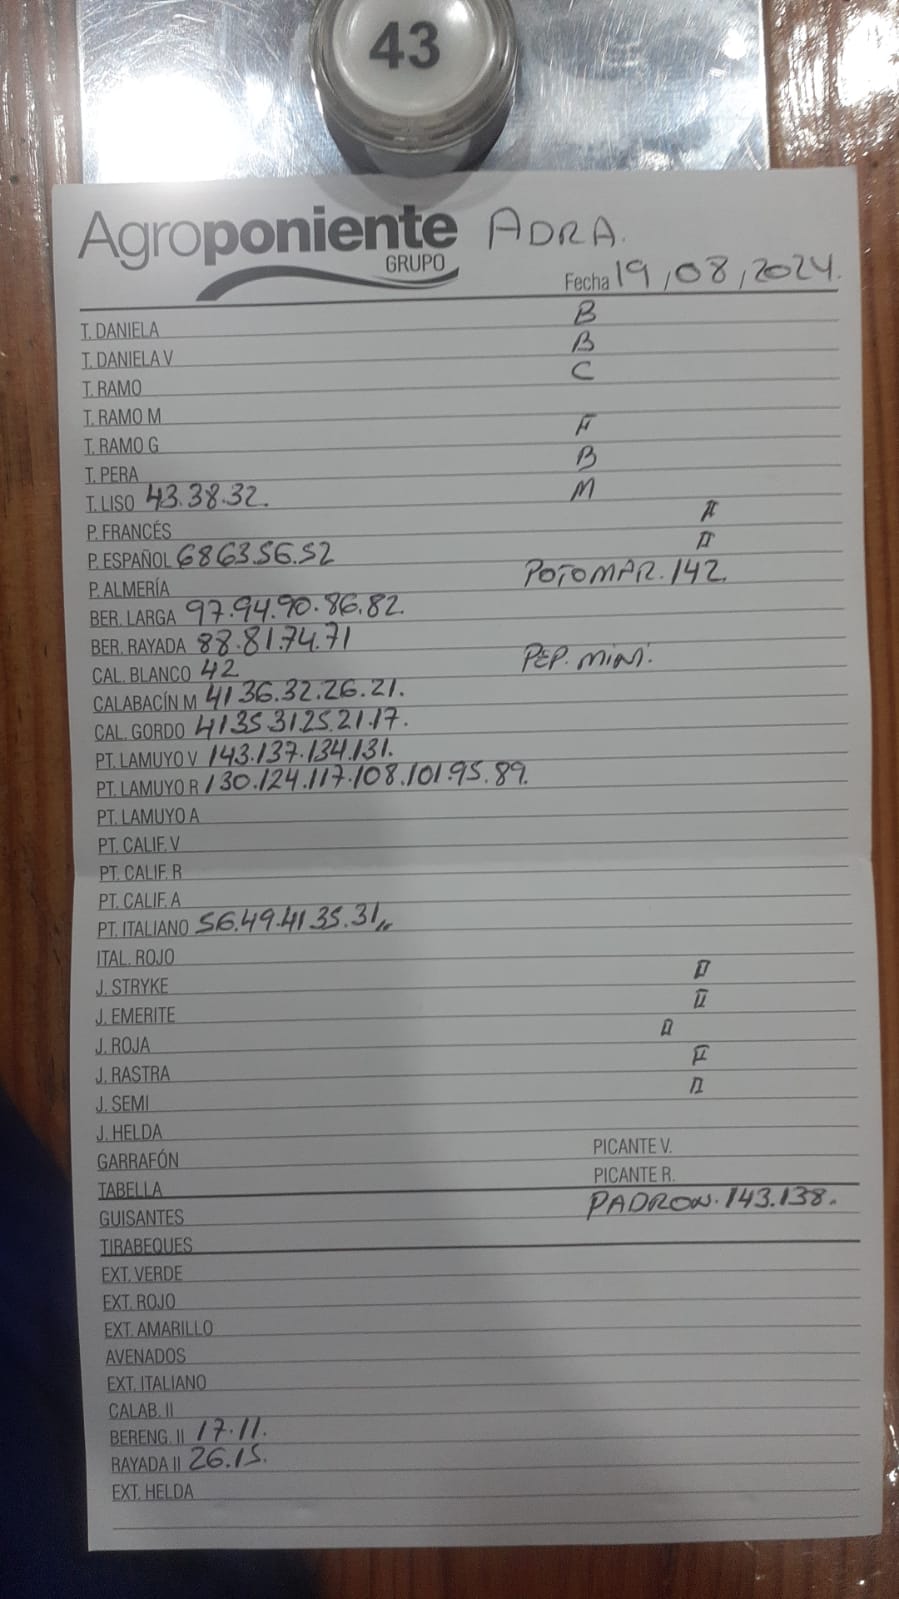 43
Agroponiente ADRA.
GRUPO
Fecha 19/08/2024.
T. DANIELA B
T. DANIELA V B
T. RAMO C
T. RAMO M
T. RAMO G F
T. PERA B
T. LISO 43.38.32. M
P. FRANCÉS
P. ESPAÑOL 68 63.56.52 II
P. ALMERÍA POTOMAR. 142.
BER. LARGA 97.94.90.86.82.
BER. RAYADA 88.81.74.71
CAL. BLANCO 42 PEP. MINI.
CALABACÍN M 41 36.32.26.21.
CAL. GORDO 41 35 31 25.21.17.
PT. LAMUYO V 143.137.134.131.
PT. LAMUYO R 130.124.117.108.101.95.89.
PT. LAMUYO A
PT. CALIF. V
PT. CALIF. R
PT. CALIF. A
PT. ITALIANO 56.49.41 35.31,,
ITAL. ROJO
J. STRYKE
J. EMERITE II
J. ROJA
J. RASTRA F
J. SEMI
J. HELDA
GARRAFÓN PICANTE V.
TABELLA PICANTE R.
GUISANTES PADRON. 143.138.
TIRABEQUES
EXT. VERDE
EXT. ROJO
EXT. AMARILLO
AVENADOS
EXT. ITALIANO
CALAB. II
BERENG. II 17.11.
RAYADA II 26.15.
EXT. HELDA